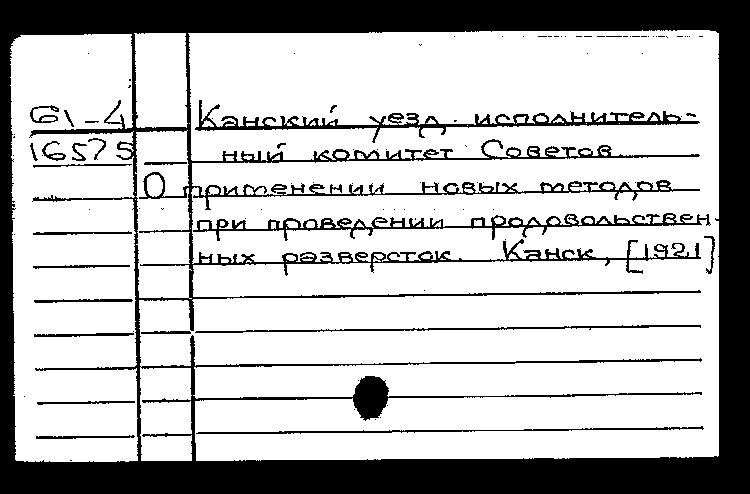 61-4 Канский уезд. исполнитель-
16575 ный комитет Советов
О применении новых методов
при проведении продовольствен-
ных разверсток. Канск, [1921]